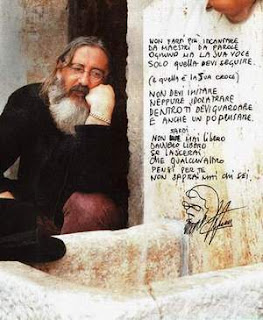 NON FARTI PIÙ INCANTARE
DAI MAESTRI DI PAROLE
OGNUNO HA LA SUA VOCE
SOLO QUELLA DEVI SEGUIRE.
(E QUELLA È LA SUA CROCE)
NON DEVI IMITARE
NEPPURE IDOLATRARE
DENTRO TI DEVI GUARDARE
E ANCHE UN PO' PENSARE.
SARAI
NON MAI LIBERO
DAVVERO LIBERO
SE LASCERAI
CHE QUALCUN'ALTRO
PENSI PER TE
NON SAPRAI MAI CHI SEI.